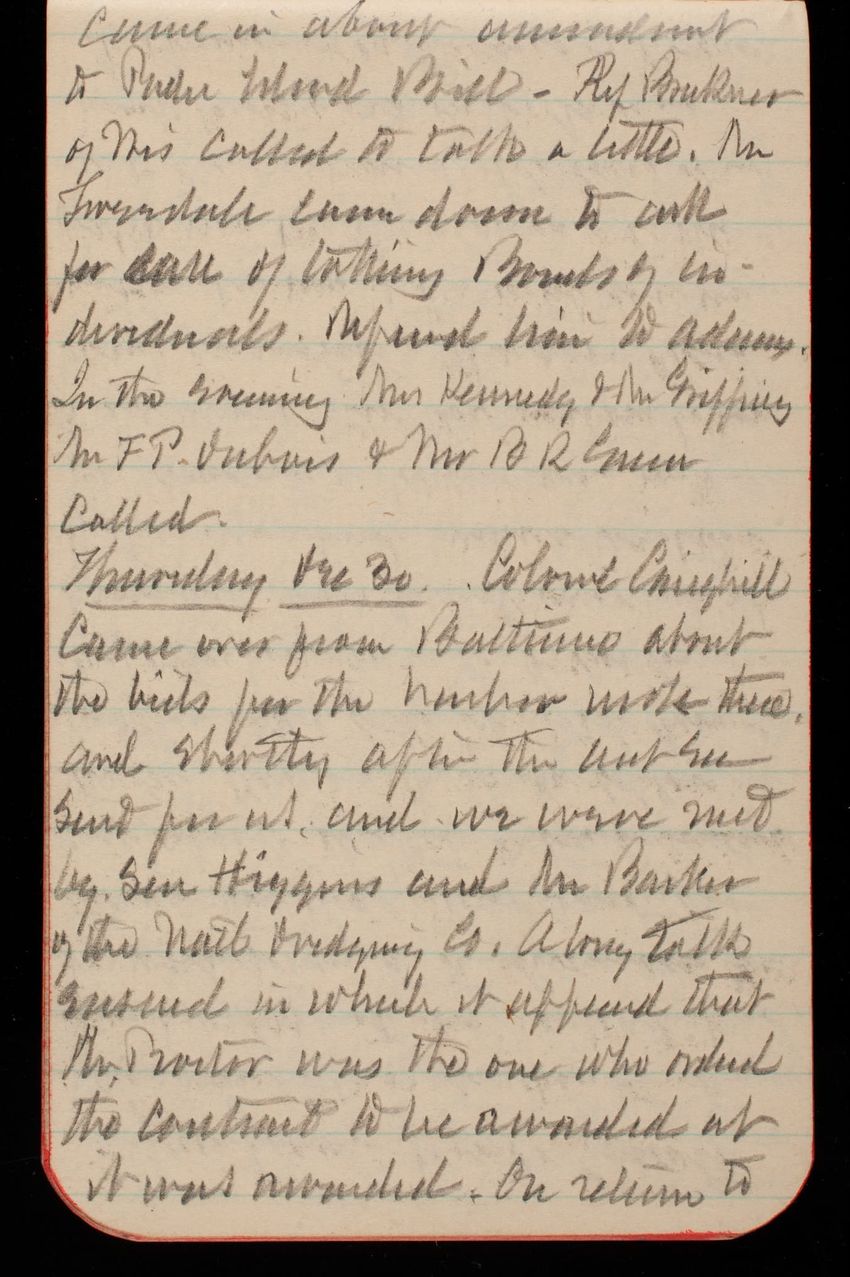 came in about amendment
to Padre Island Bill - Rep Brickner
of Wis called to talk a little. Mr
came down to ask
for care of taking Bonds of in-
dividuals. Refered him to Adams.
In the evening Mrs Kennedy & Mr Griffing
Mr F P. Dubois & Mr B R Green
called.
Thursday Dec 30. Colonel Craighill
Came over from Baltimore about
the bids for the harbor work there.
and shortly after the
sent for us, and we were met
by. Sen Higgins and Mr Barker
of the Natl Dredging Co. A long talk
ensued in which it appeard that
Mr. Proctor was the one who orderd
the contract to be awarded as
it was awarded. On return to